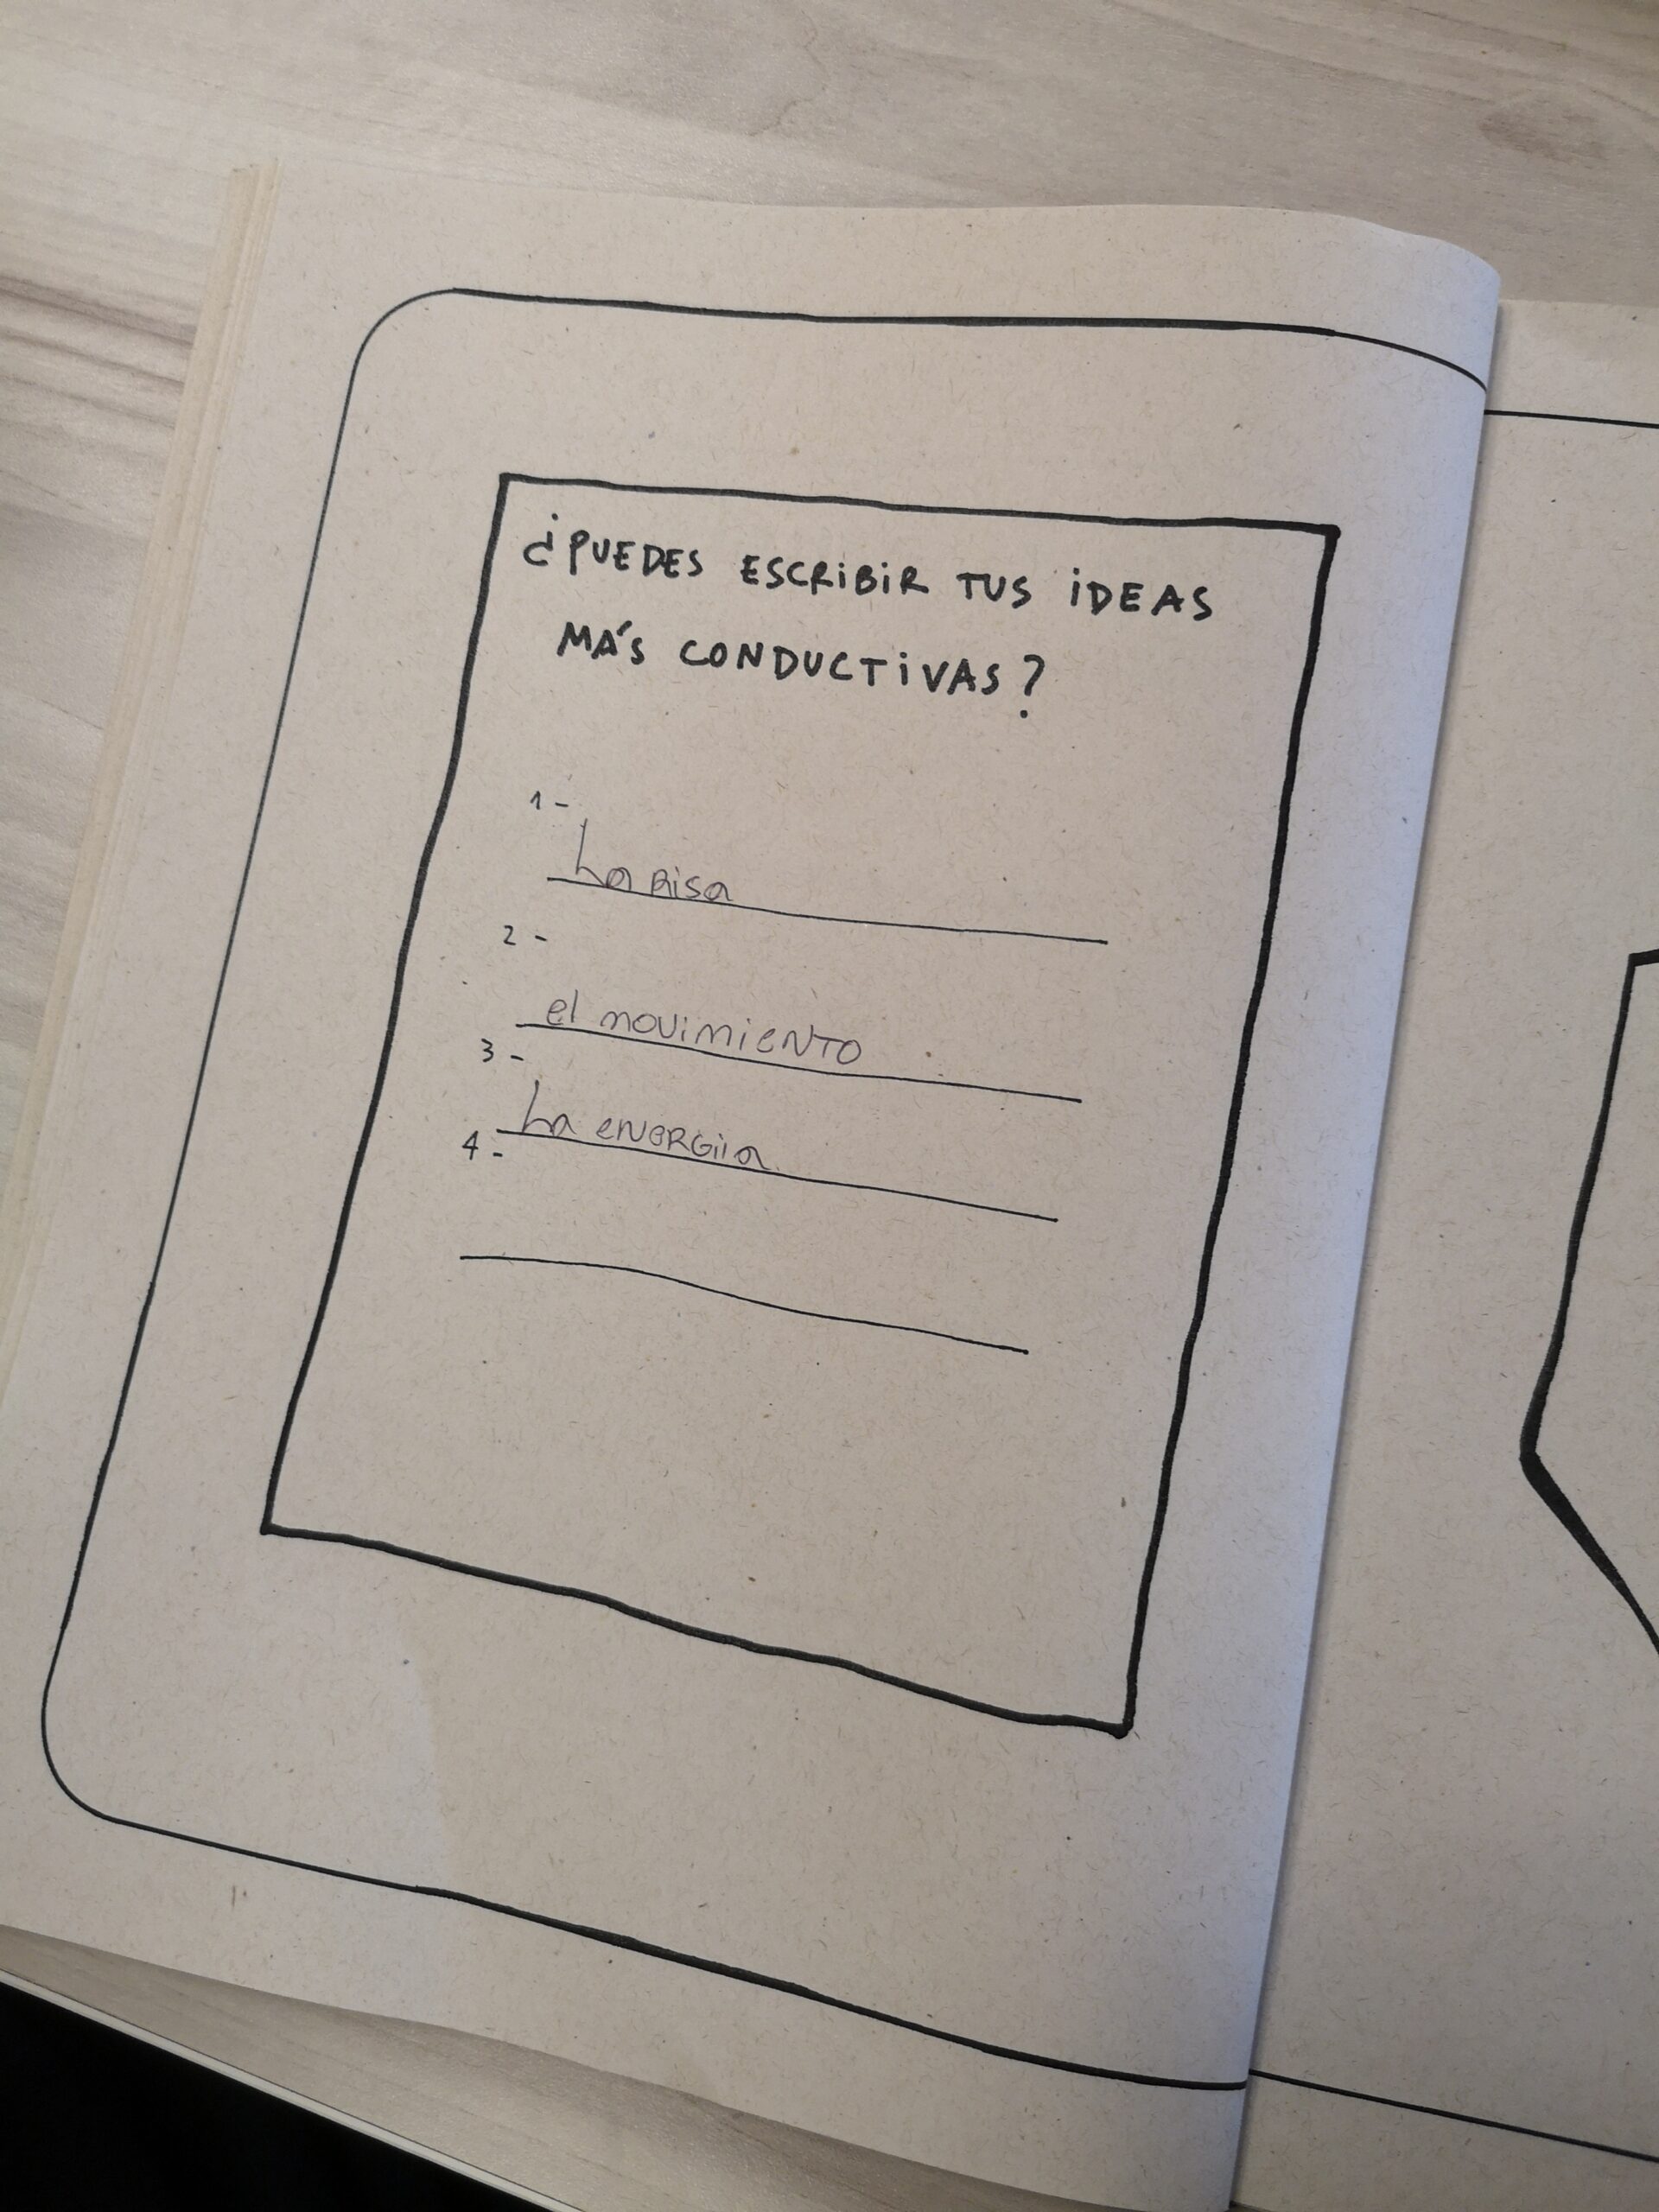 ¿PUEDES ESCRIBIR TUS IDEAS
MÁS CONDUCTIVAS?
1-
La Risa
2-
el movimiento
3-
La energiia
4-